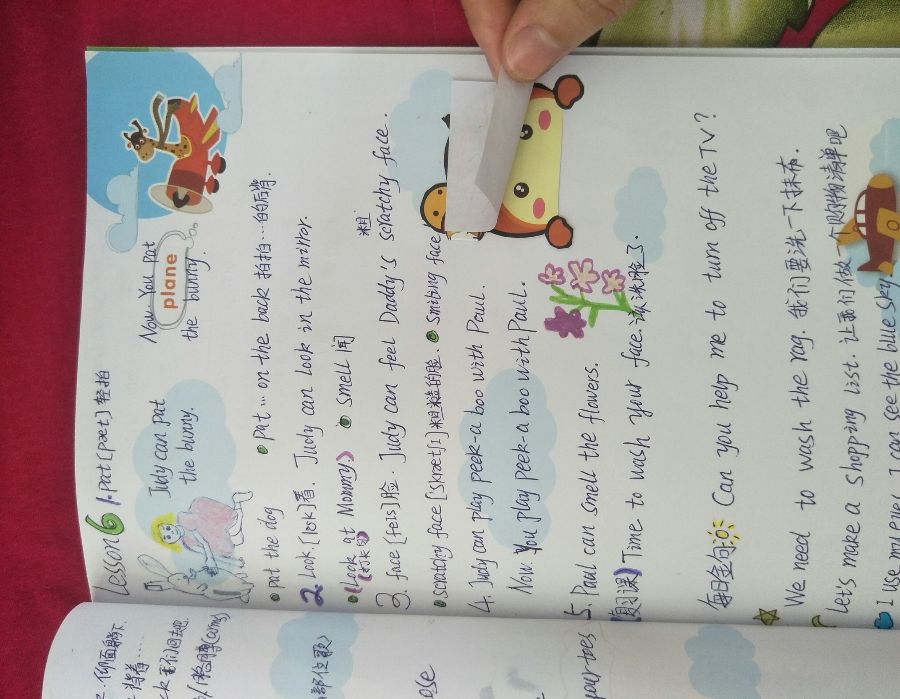 Lesson 6
1. pat [pæt] 轻拍
Judy can pat
the bunny.
Now You pat
plane
the bunny.
pat the dog
pat ... on the back 拍拍...的后背.
2. Look. [lʊk] 看. Judy can look in the mirror.
(Look at Mommy) smell 闻
3. face [feis] 脸. Judy can feel Daddy's scratchy face.
粗
scratchy face 粗糙的脸. smiling face
4. Judy can play peek-a boo with Paul.
Now. You play peek-a boo with Paul.
5. Paul can smell the flowers.
Time to wash your face. 该洗脸了.
每日金句 Can you help me to turn off the TV?
We need to wash the rag. 我们要洗一下抹布.
Let's make a shopping list. 让我们做一个购物清单吧
I use my eyes, I can see the blue sky.
2. 仰面躺下
your toes